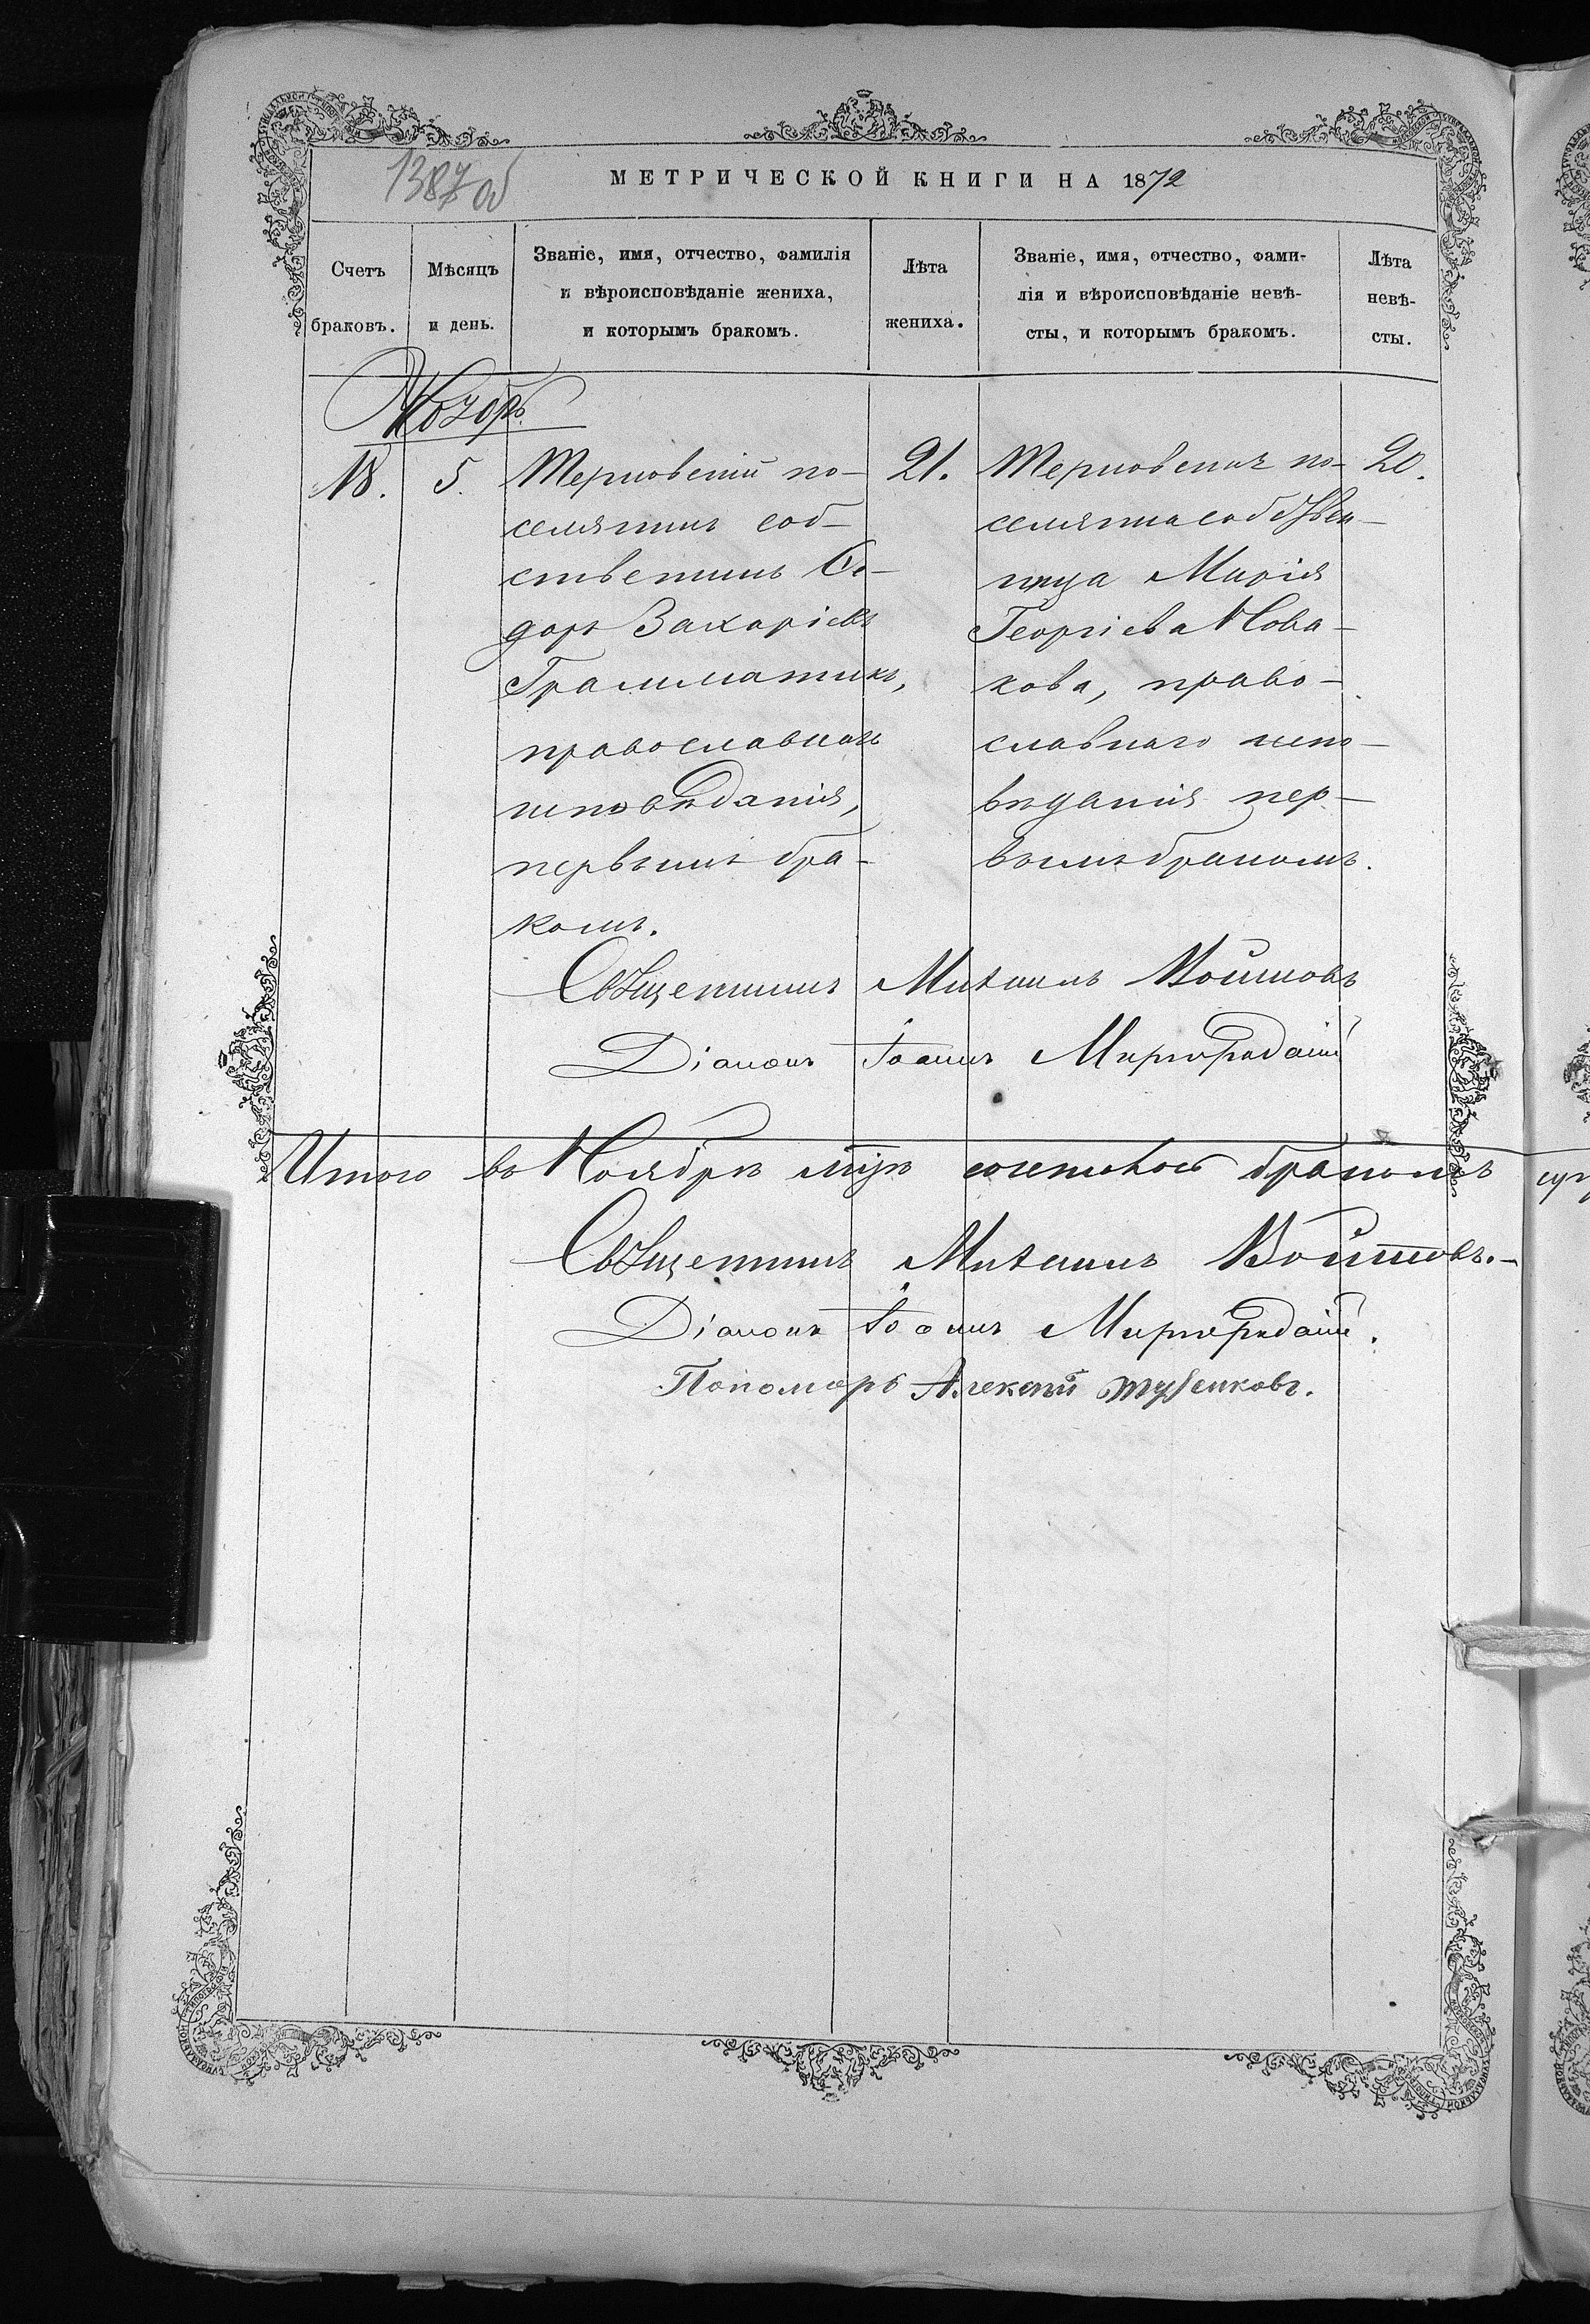 1387 об
МЕТРИЧЕСКОЙ КНИГИ НА 1872
Счетъ браковъ.
Мѣсяцъ и день.
Званіе, имя, отчество, фамилія
и вѣроисповѣданіе жениха,
и которымъ бракомъ.
Лѣта жениха.
Званіе, имя, отчество, фами-
лія и вѣроисповѣданіе невѣ-
сты, и которымъ бракомъ.
Лѣта невѣ-
сты.
Ноябрь
18.
5.
Терновскій по-
селянинъ соб-
ственникъ Си-
доръ Захаріевъ
Грамматикъ,
православнаго
исповѣданія,
первымъ бра-
комъ.
21.
Терновская по-
селянка собствен-
ница Марія
Георгіева Нова-
кова, право-
славнаго испо-
вѣданія пер-
вымъ бракомъ.
20.
Священникъ Михаилъ Войтовъ
Діаконъ Іоаннъ Миргородскій
Итого въ Ноябрѣ мцѣ сочеталось бракомъ
Священникъ Михаилъ Войтовъ.
Діаконъ Іоаннъ Миргородскій.
Пономарь Алексѣй